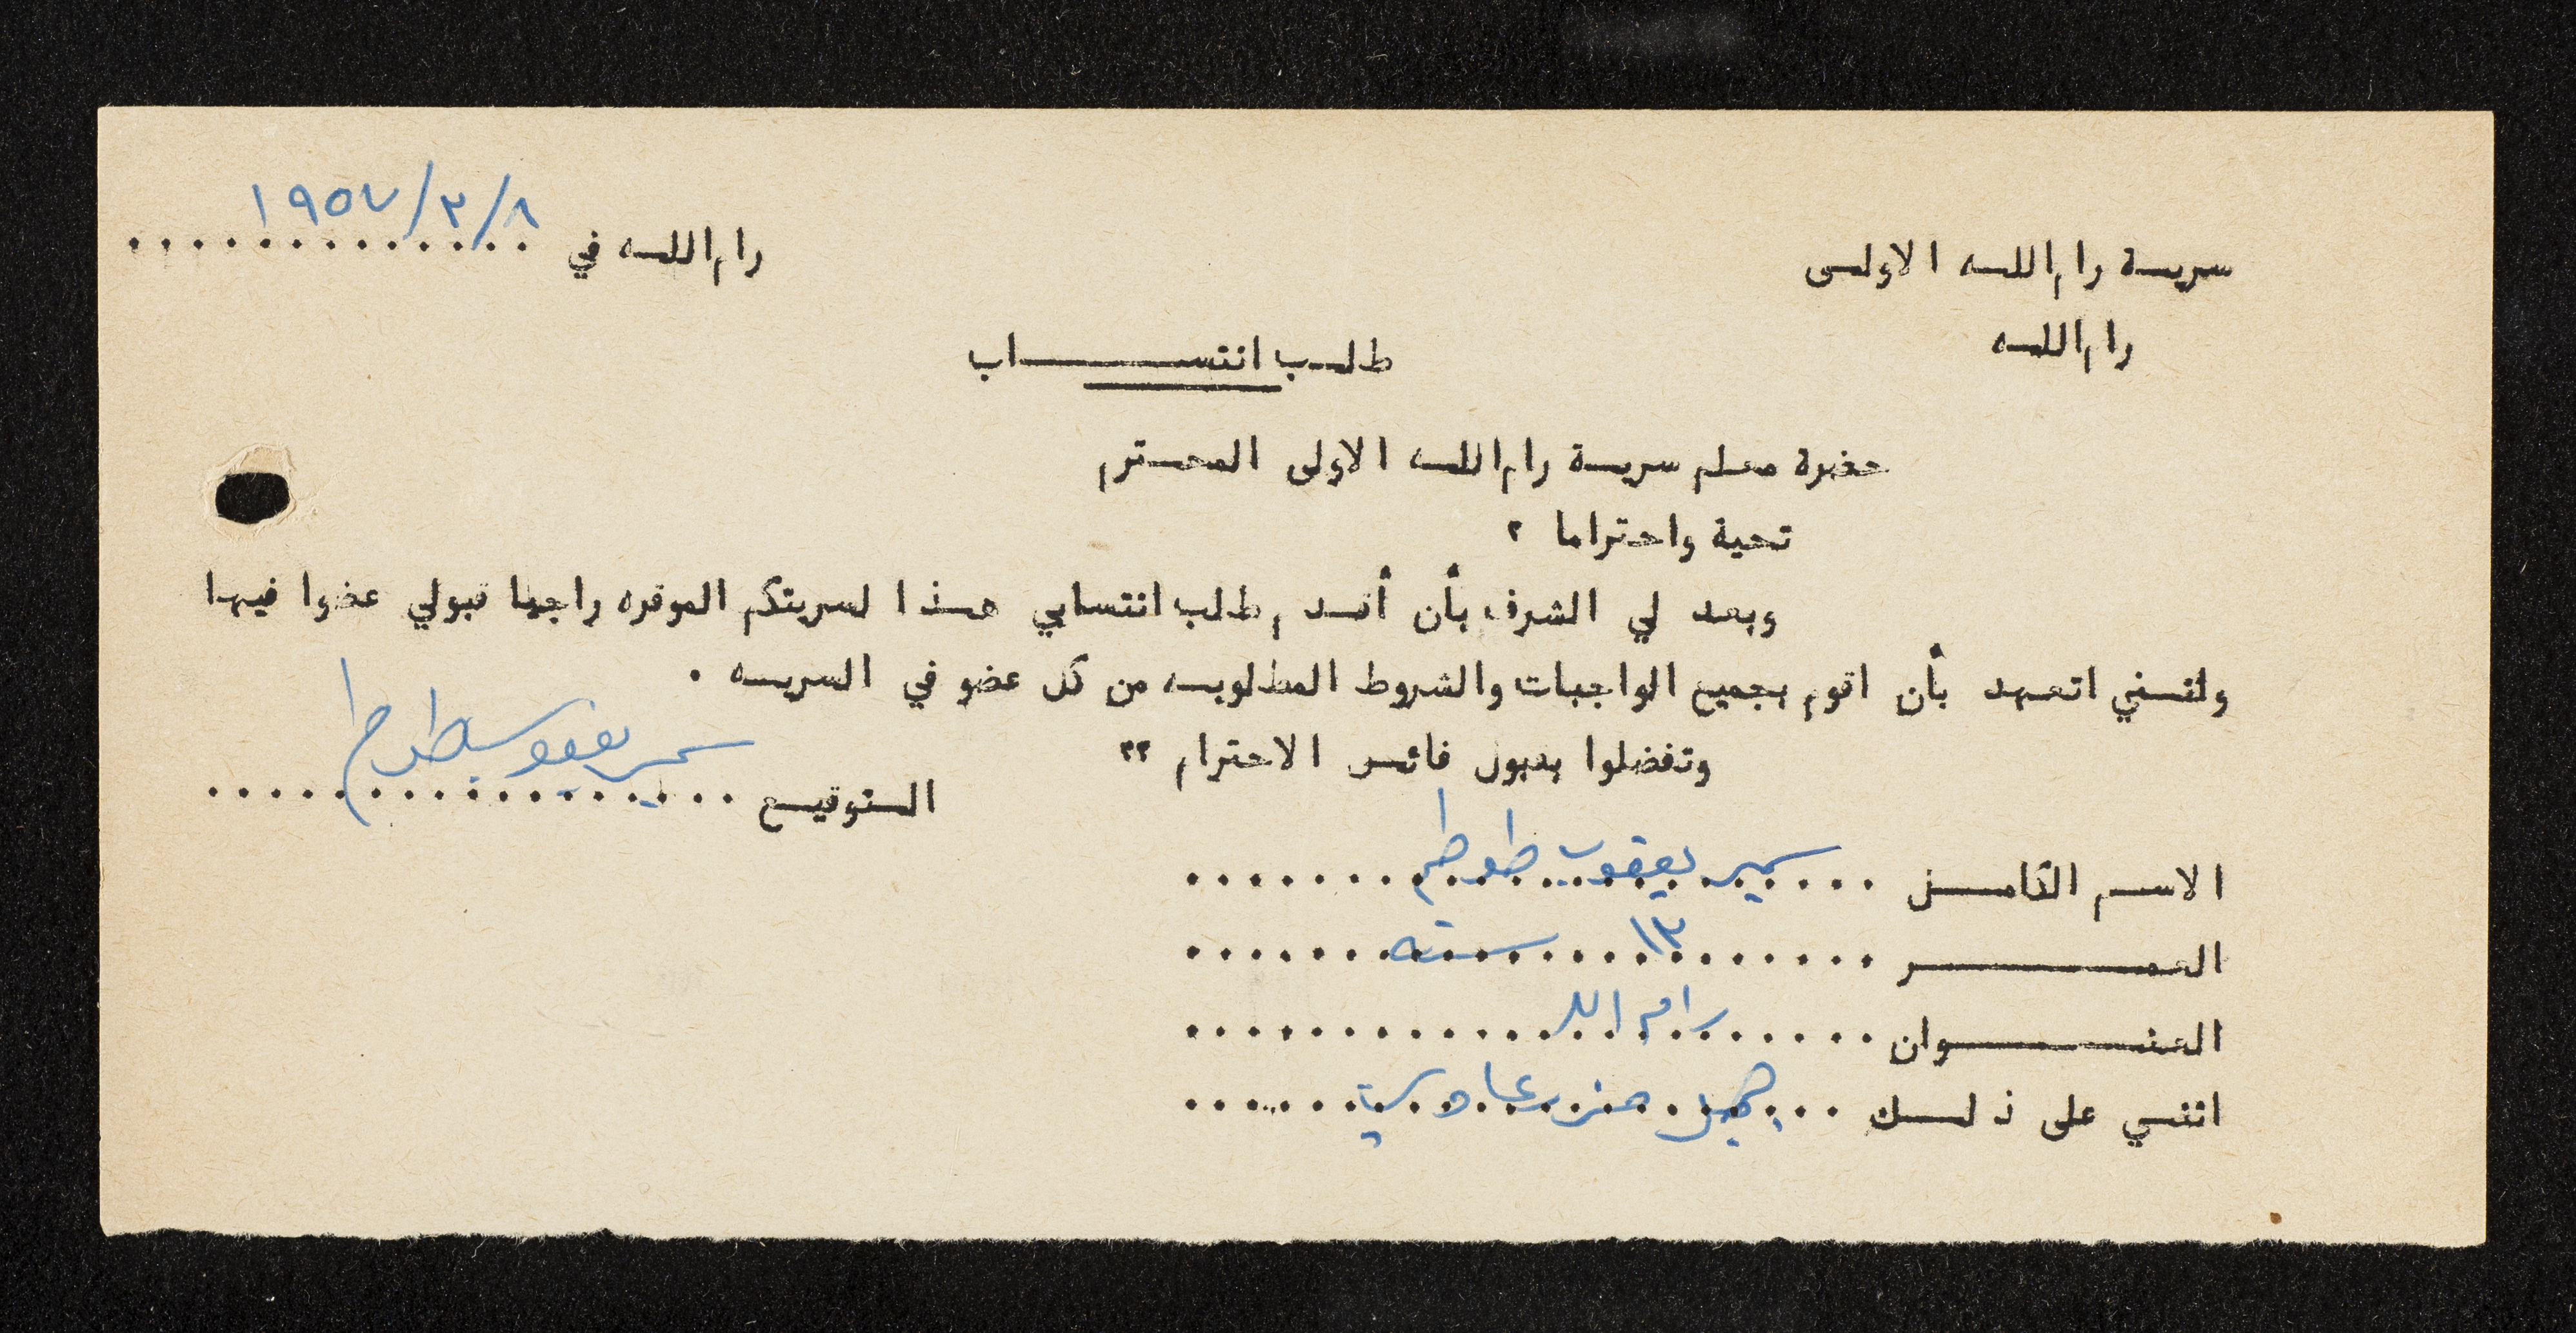 سرية رام الله الاولى
رام الله في ١٩٥٧/٣/٨
رام الله
طلب انتساب
حضرة معلم سرية رام الله الاولى المحترم
تحية واحتراما ،
وبعد لي الشرف بأن أقدم طلب انتسابي هذا لسريتكم الموقره راجيا قبولي عضوا فيها
وانني اتعهد بأن اقوم بجميع الواجبات والشروط المطلوبه من كل عضو في السريه .
وتفضلوا بقبول فائق الاحترام ،،
التوقيع سمير يعقوب
الاسم الكامل سمير يعقوب طوطح
العمر ١٣ سنه
العنوان رام الله
اثني على ذلك جميل